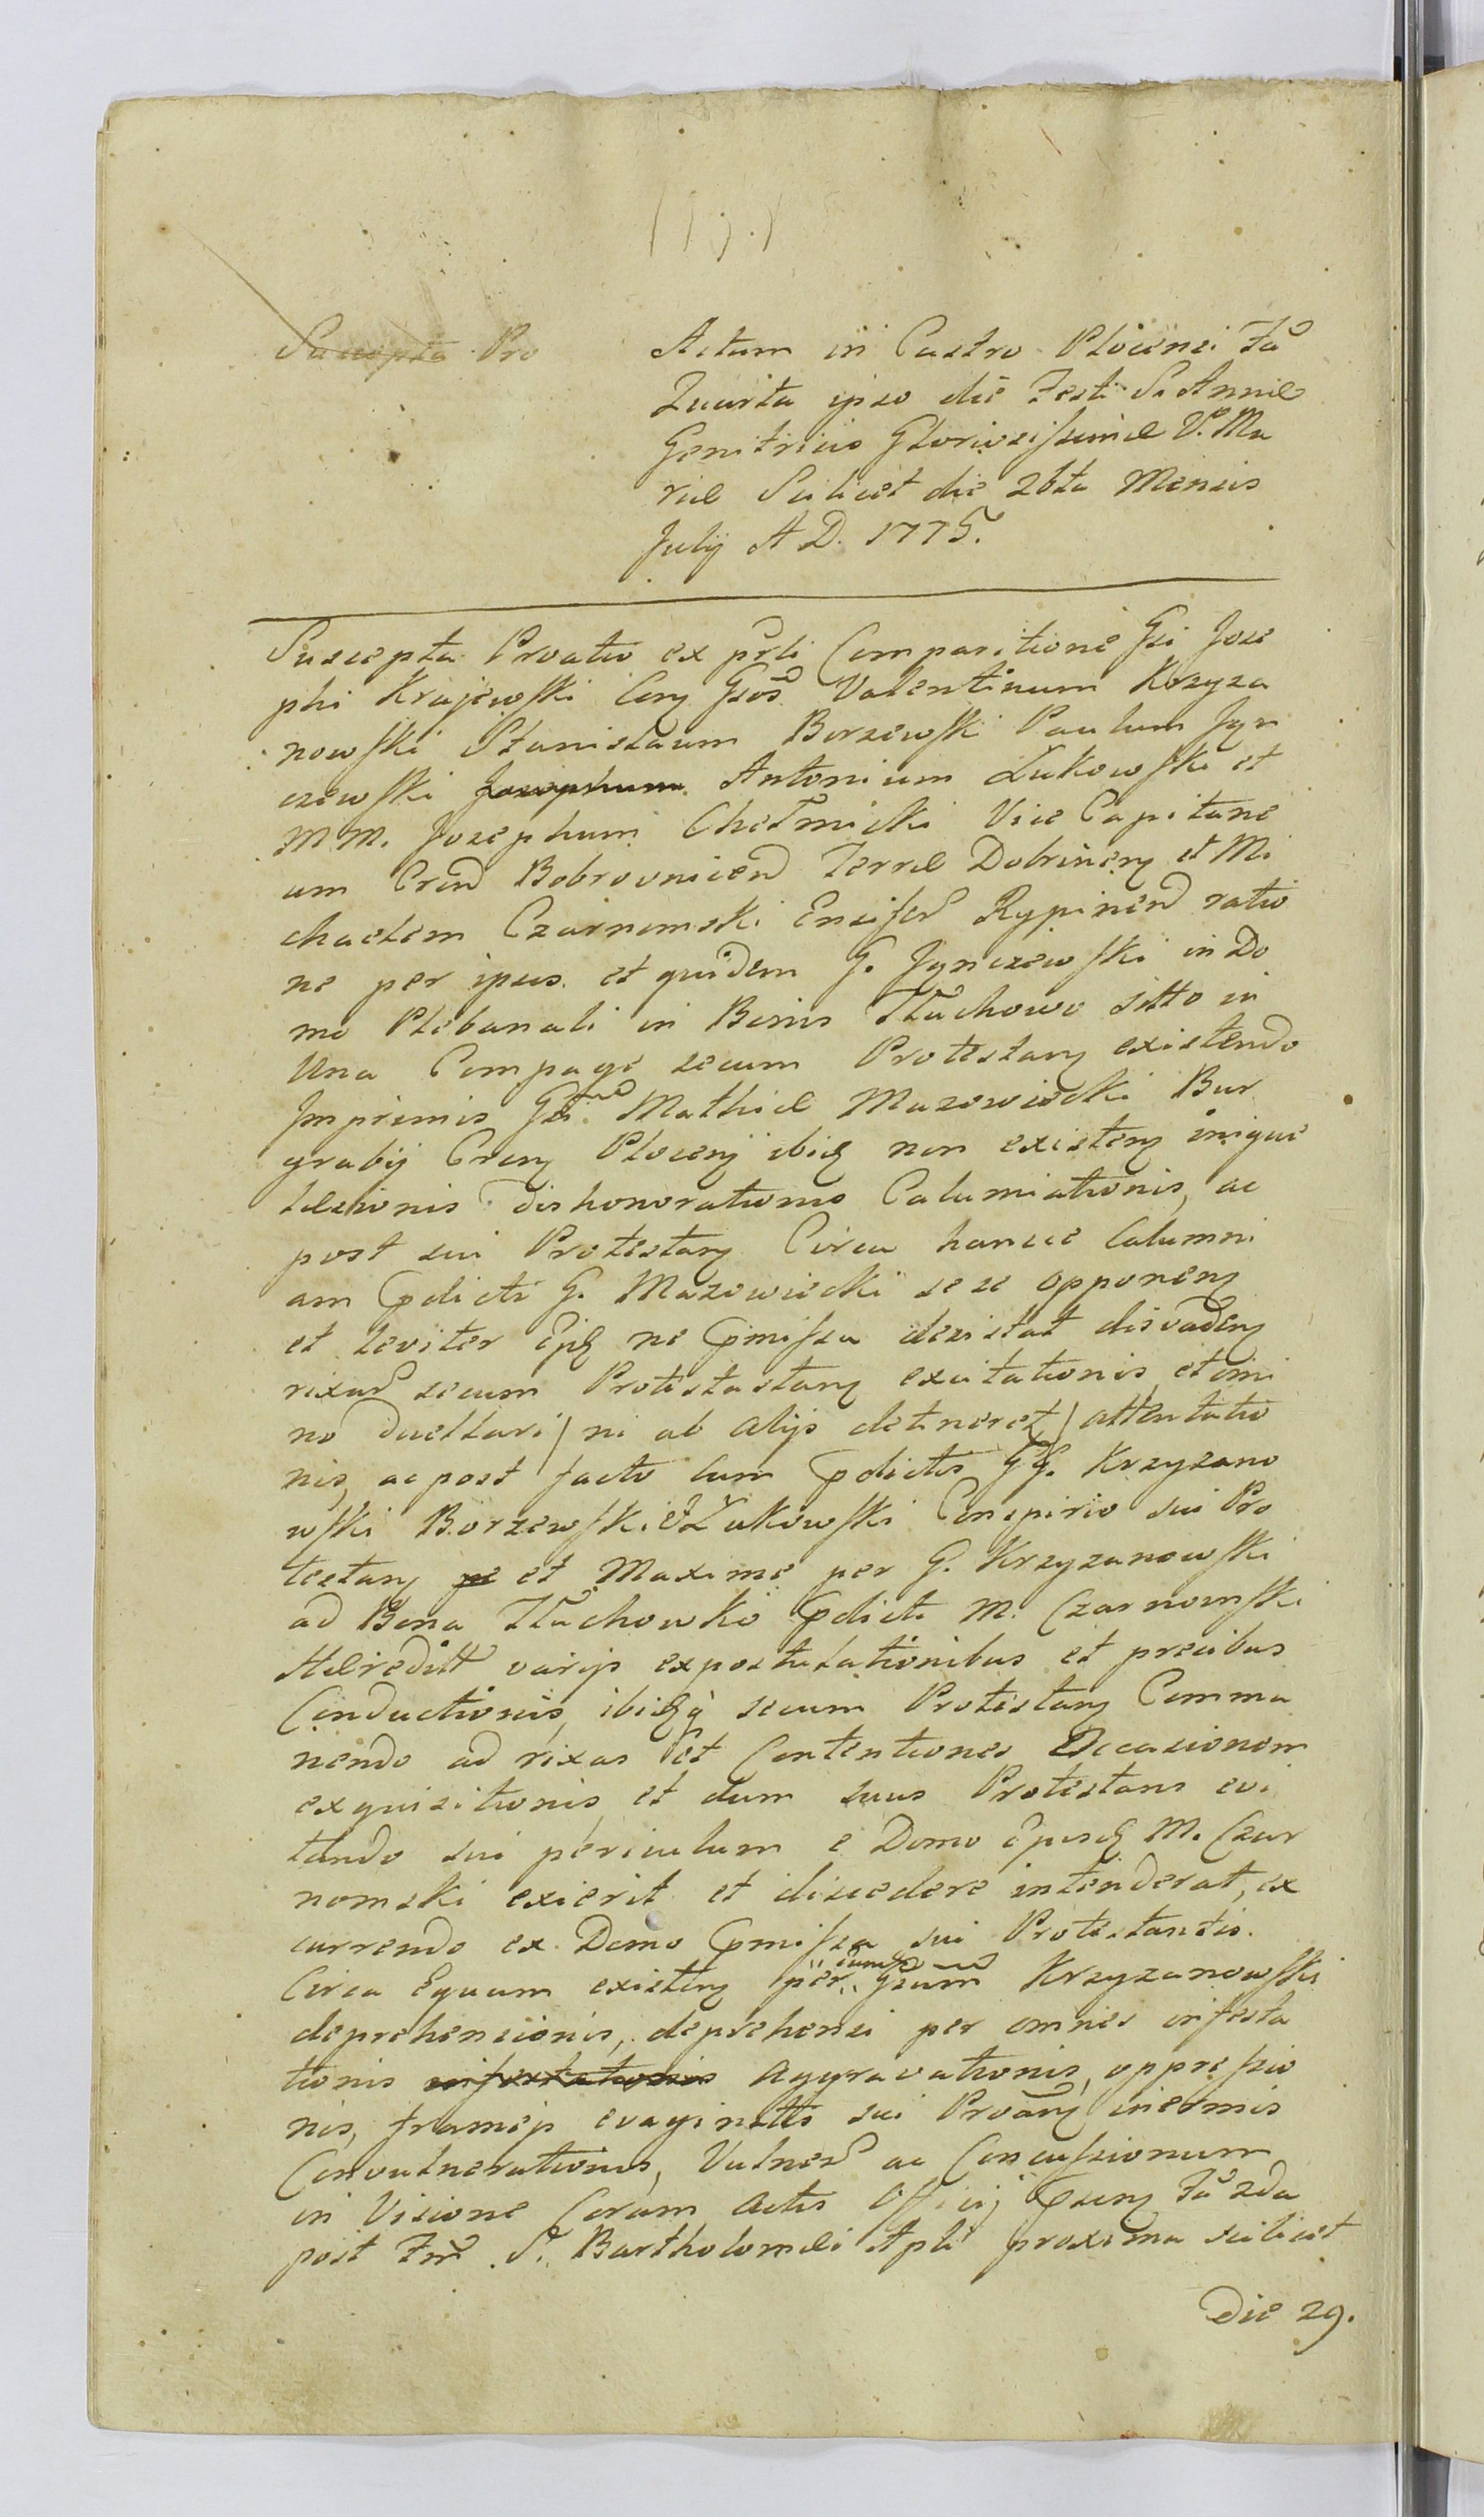 Suscepta Pro
Actum in Castro Plocensi Fã
Quarta ipso die Festi S. Annæ
Genitricis Gloriosissimæ V. Ma
riæ Scilicet die 26ta Mensis
July A D. 1775.
Suscepta Protatio ex prsti Comparitione Gsi Jose
phi Krajewski Con Gsos Valentinum Krzyza
nowski Stanislaum Borzewski Paulum Jyn
czewski Josephum Antonium Łukowski et
M M. Josephum Chełmicki Vice Capitane
um Cren Bobrovnicen Terræ Dobrinen et Mi
chaelem Czarnomski Ensifer Rypinen ratio
ne per ipsos et quidem G. Jynczewski in Do
mo Plebanali in Bonis Tłuchowo sitto in
Una Compage secum Protestan existendo
Imprimis Gsi Mathiæ Mazowiecki Bur
grabij Cren Plocen ibid non existen inique
læsionis dishonorationis Calumiationis, ac
post sui Protestan Circa hancce Calumni
am pdicti G. Mazowiecki sese opponen
et leviter Epd ne pmissa desistat disvaden
rixar secum Protestastan excitationis et imi
no duellari / ni ab alijs detineret / attentatio
nis, ac post facto cum pdictis GG. Krzyzano
wski Borzewski et Łukowski Conspirio sui Pro
testan pe et Maxime per G. Krzyzanowski
ad Bona Tłuchowko pdicti M. Czarnomski
Hæreditt varijs expostulationibus et precibus
Conductionis, ibidq secum Protestan Comma
nendo ad rixas et Contentiones Occasionem
exquisitionis et dum suus Protestans evi
tando sui periculum e Domo Ejusd M. Czar
nomski exierit et discedere intenderat, ex
currendo ex Domo pmissa sui Protestantis.
Circa Equum existen per eumd Gsum Krzyzanowski
deprehensionis, deprehensi per omnes infesta
tionis infestationis aggravationis, oppressio
nis, frameis evaginattis sui Protan inermis
Convulnerationis, Vulner ac Concussionum
in Visione Coram Actis Officij psen Fã 2da
post Fm S. Bartholomæi Apli proxima scilicet
Die 29.